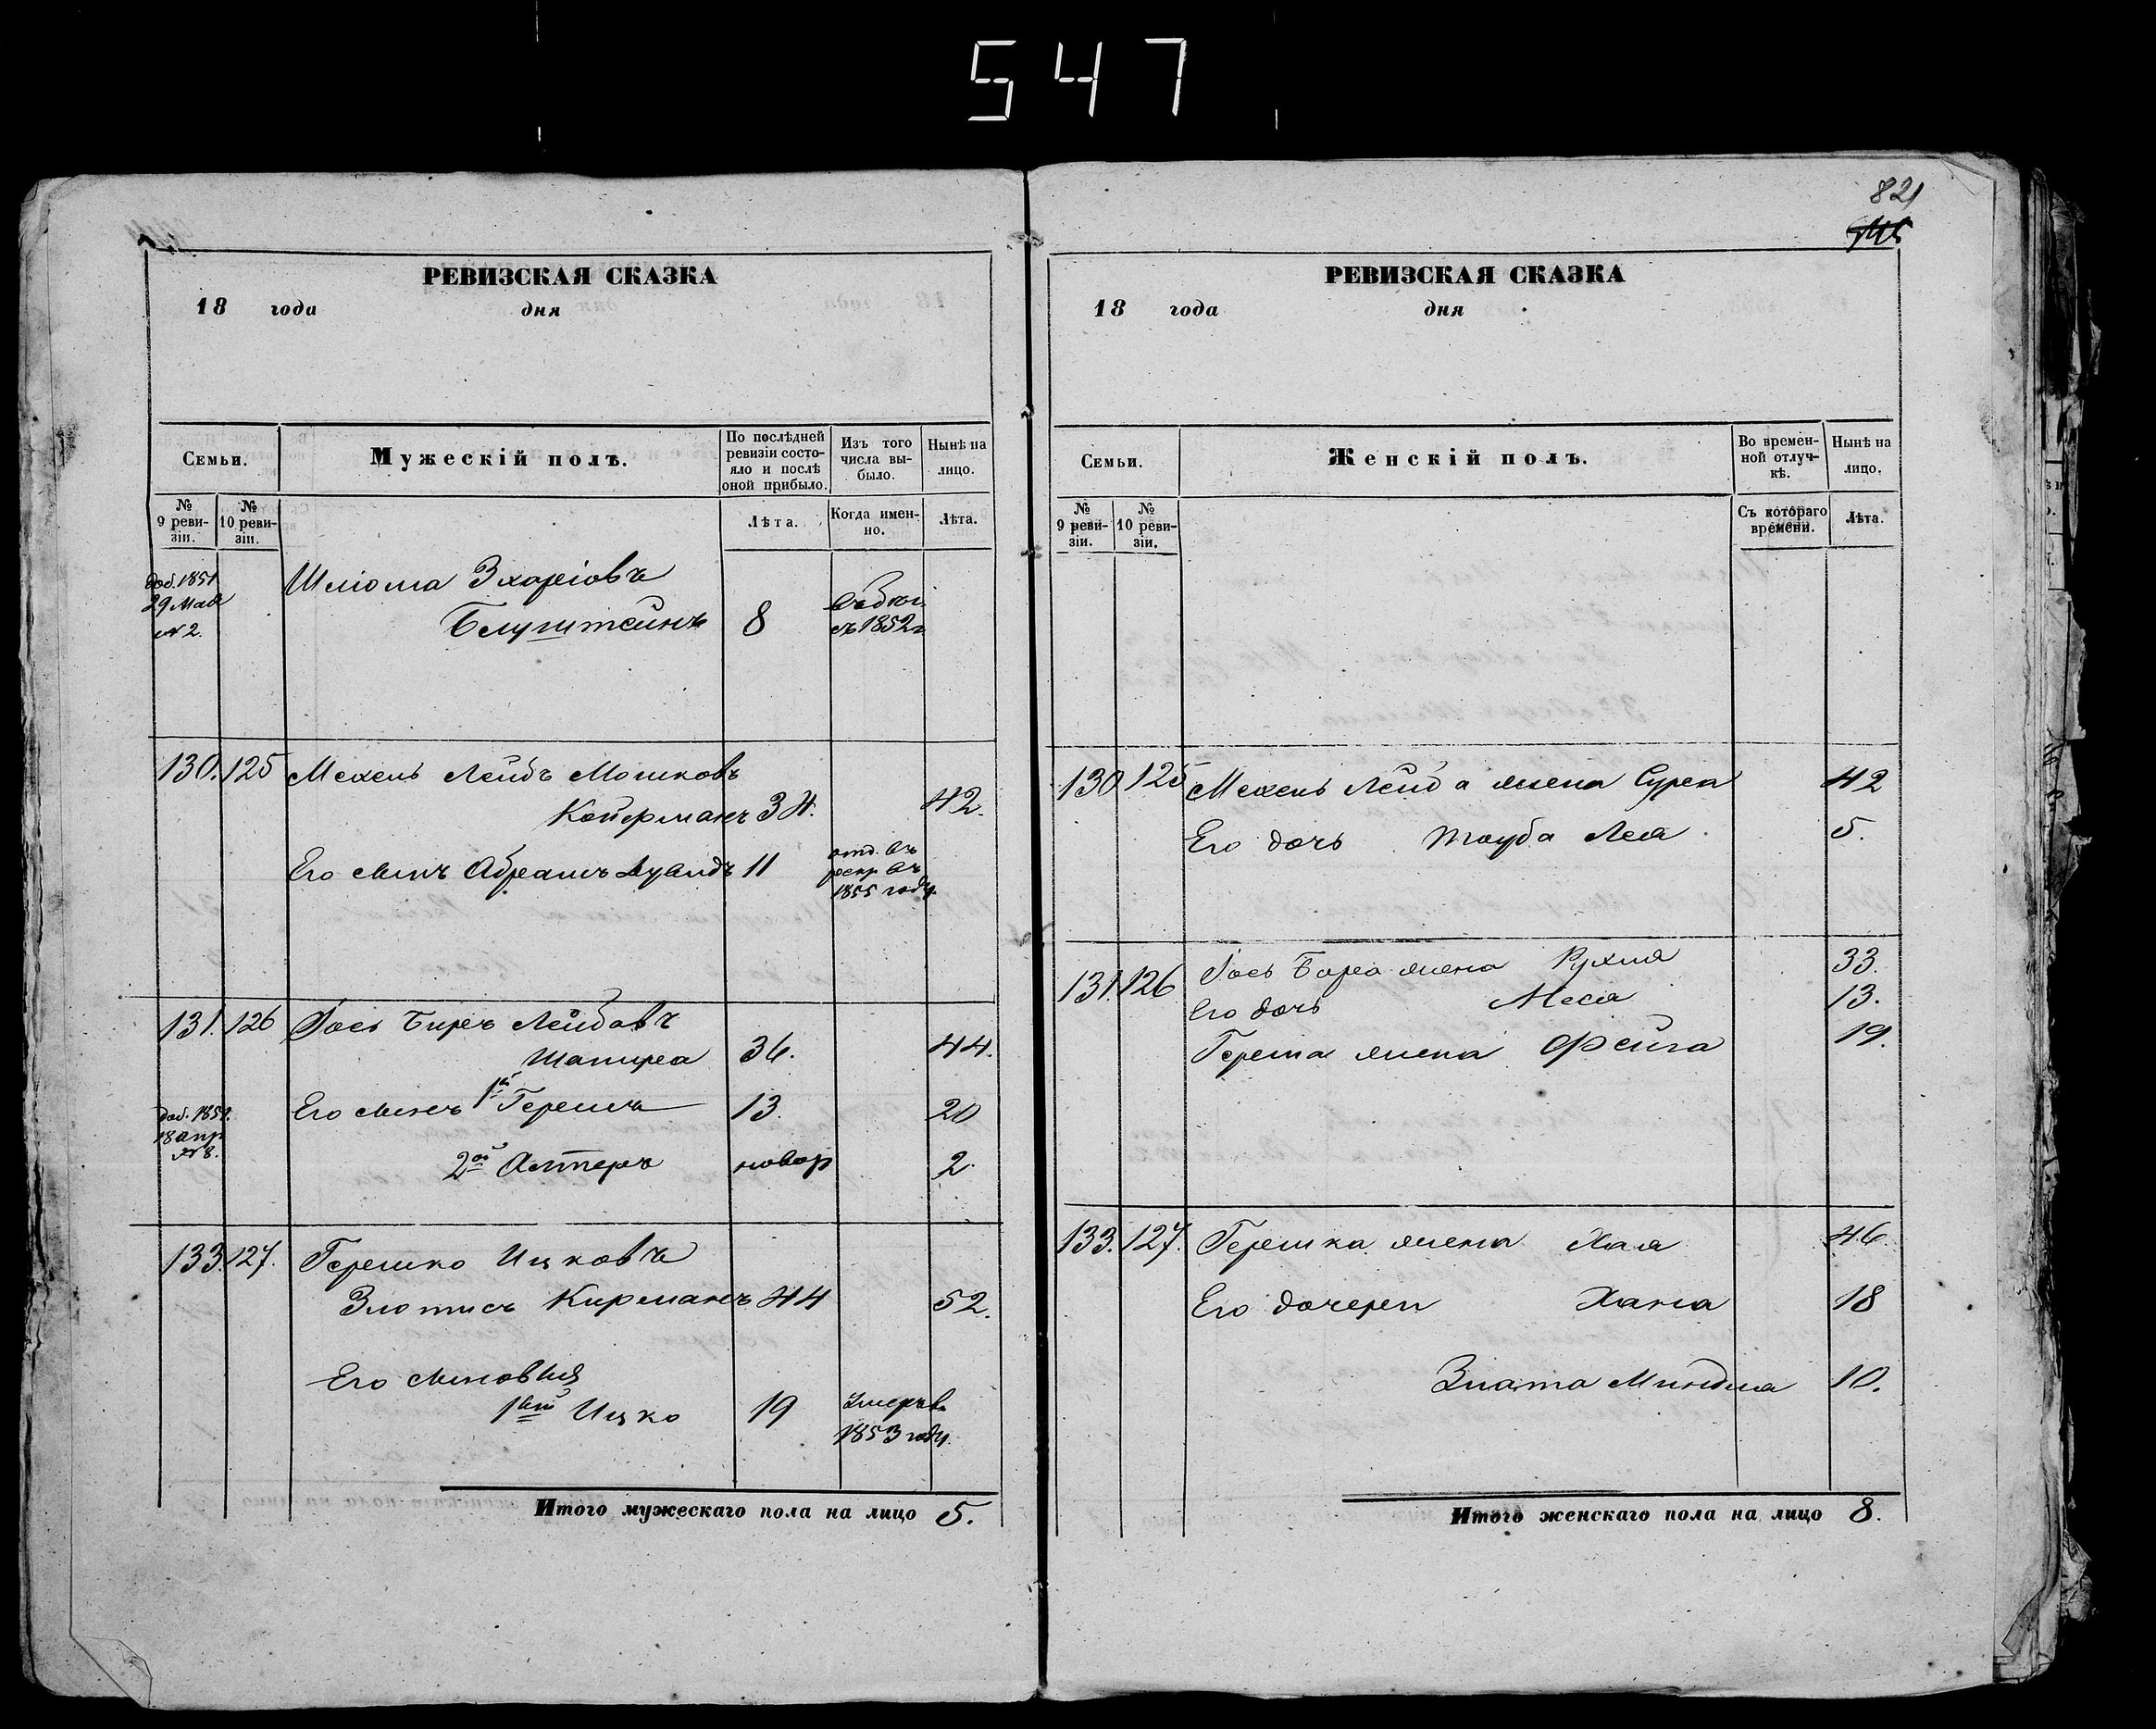 547
РЕВИЗСКАЯ СКАЗКА
18 года дня
Семьи.
Мужескій полъ.
По послѣдней ревизіи состо-
яло и послѣ оной прибыло.
Изъ того числа вы-
было.
Нынѣ на лицо.
№ 9 реви-
зіи.
№ 10 реви-
зіи.
Лѣта.
Когда имен-
но.
Лѣта.
доб. 1851
29 Мая
№ 2.
Шліома
Блуштейнъ 8
въ 1852 г
130. 125 Мехель Лейбъ Мошковъ
Койфманъ 34. 42.
Его сынъ Абрамъ Дувидъ 11
отд. въ
рекр. въ
1855 году.
131. 126 Іось Беръ Лейбовъ
Шапира 36. 44.
Его сынъ 1й Гершъ 13. 20
доб. 1851.
18 апр
№ 8.
2ой Алтеръ новор 2.
133. 127. Гершко Ицковъ
Кирманъ 44 52.
Его сыновья
1ый Ицко 19
Умеръ в.
1853 году.
Итого мужескаго пола на лицо 5.
821
РЕВИЗСКАЯ СКАЗКА
18 года дня
Семьи.
Женскій полъ.
Во времен-
ной отлуч-
кѣ.
Нынѣ на лицо.
№ 9 реви-
зіи.
№ 10 реви-
зіи.
Съ котораго времени.
Лѣта.
130 125 Мехель Лейба жена Сура 42
Его дочь Тауба Лея 5.
131. 126 Іось Бера жена Рухля 33.
Его дочь 13.
Герша жена Фейга 19.
133. 127. Гершка жена Хая 46.
Его дочери Хана 18
Злата Миндля 10.
Итого женскаго пола на лицо 8.